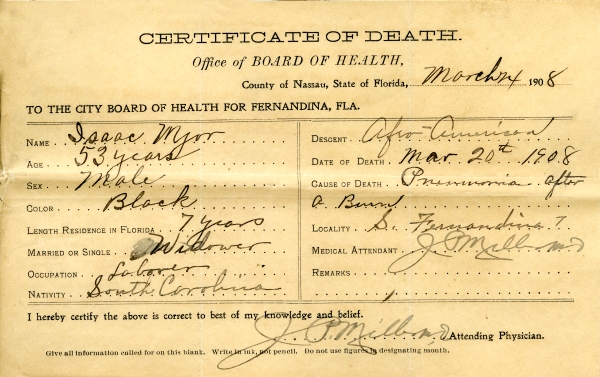 CERTIFICATE OF DEATH.
Office of BOARD OF HEALTH,
County of Nassau, State of Florida, March 24 1908
TO THE CITY BOARD OF HEALTH FOR FERNANDINA, FLA.
NAME Isaac
AGE 53 years
SEX Male
COLOR Black
LENGTH RESIDENCE IN FLORIDA 7 years
MARRIED OR SINGLE Widower
OCCUPATION Laborer
NATIVITY South Carolina
DESCENT Afro-American
DATE OF DEATH Mar 20th 1908
CAUSE OF DEATH Pneumonia after
a Burn
LOCALITY S. Fernandina
MEDICAL ATTENDANT J.
REMARKS
I hereby certify the above is correct to best of my knowledge and belief.
J. Attending Physician.
Give all information called for on this blank. Write in ink, not pencil. Do not use figures in designating month.